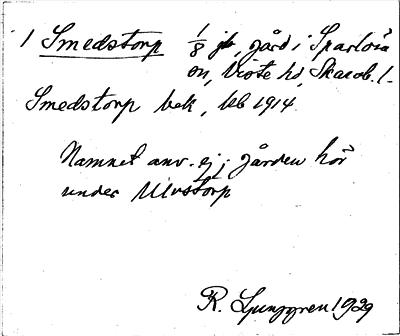 1 Smedstorp 1/8 jb, gård i Sparlösa
sn, Viste hd, Skarab. l.
Smedstorp bek, kb 1914.
Namnet anv. ej; gården hör
under Ulvstorp
R. Ljunggren 1929